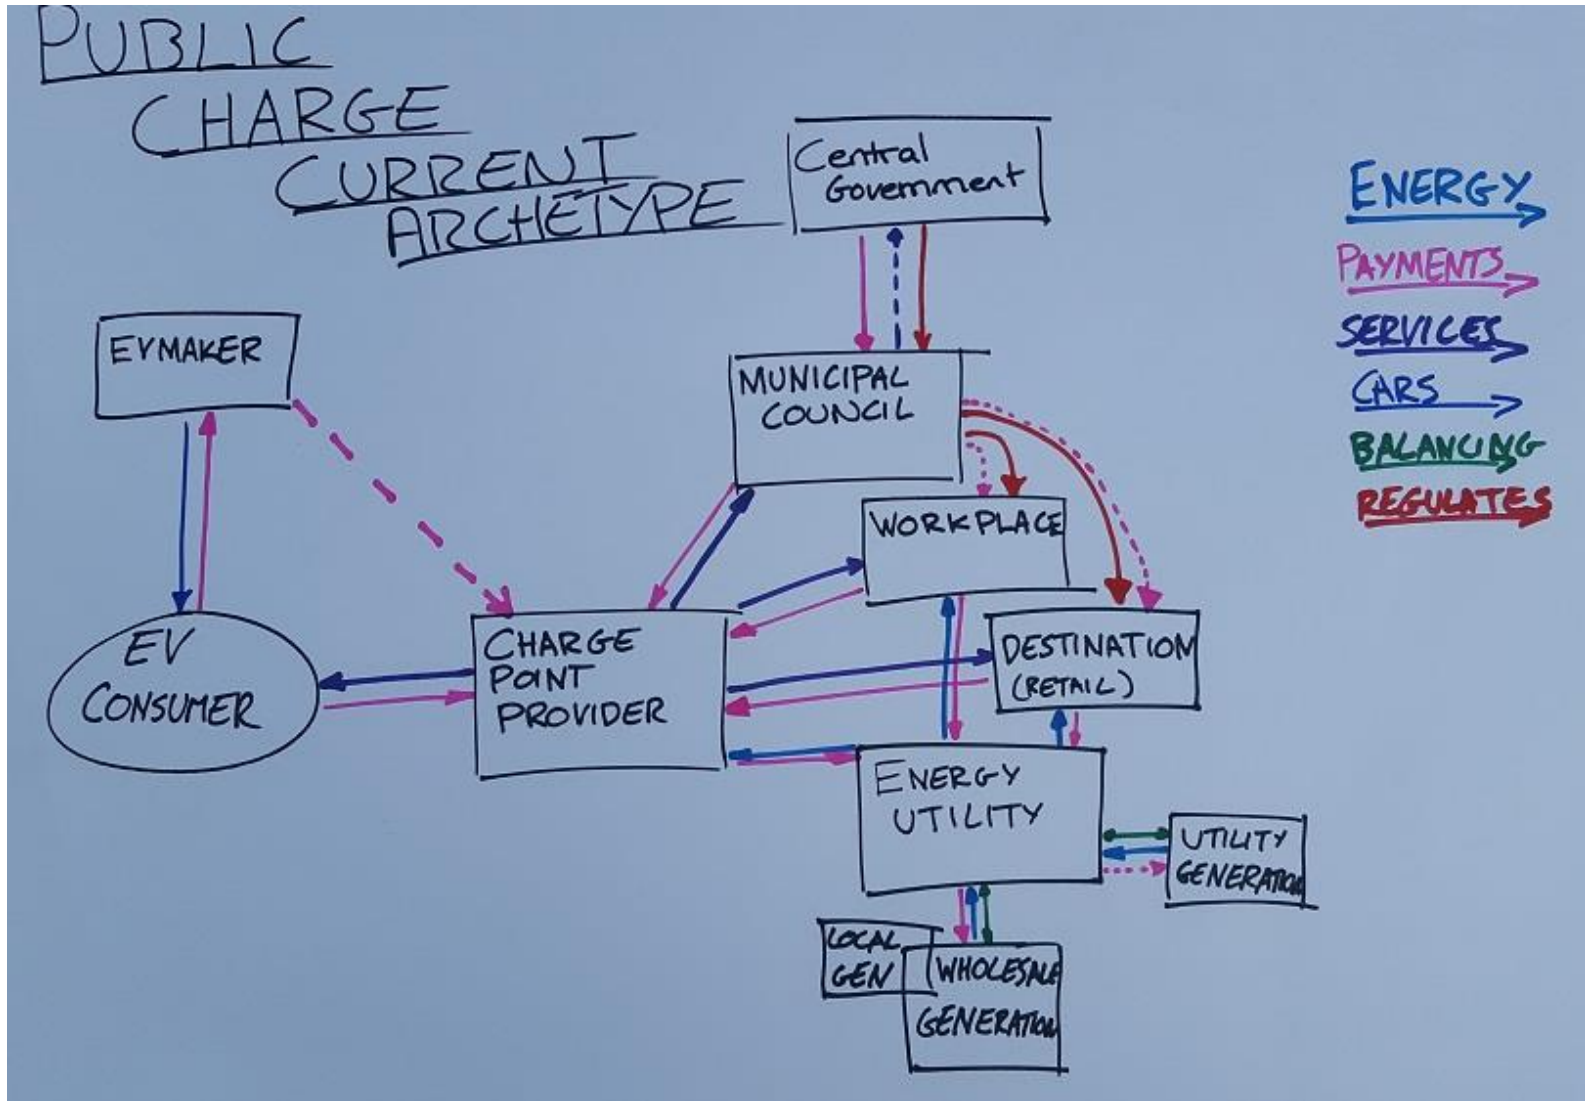 PUBLIC
CHARGE
CURRENT
ARCHETYPE
Central
Government
ENERGY
PAYMENTS
SERVICES
CARS
BALANCING
REGULATES
EVMAKER
MUNICIPAL
COUNCIL
WORKPLACE
EV
CONSUMER
CHARGE
POINT
PROVIDER
DESTINATION
(RETAIL)
ENERGY
UTILITY
UTILITY
GENERATION
LOCAL
GEN
WHOLESALE
GENERATION